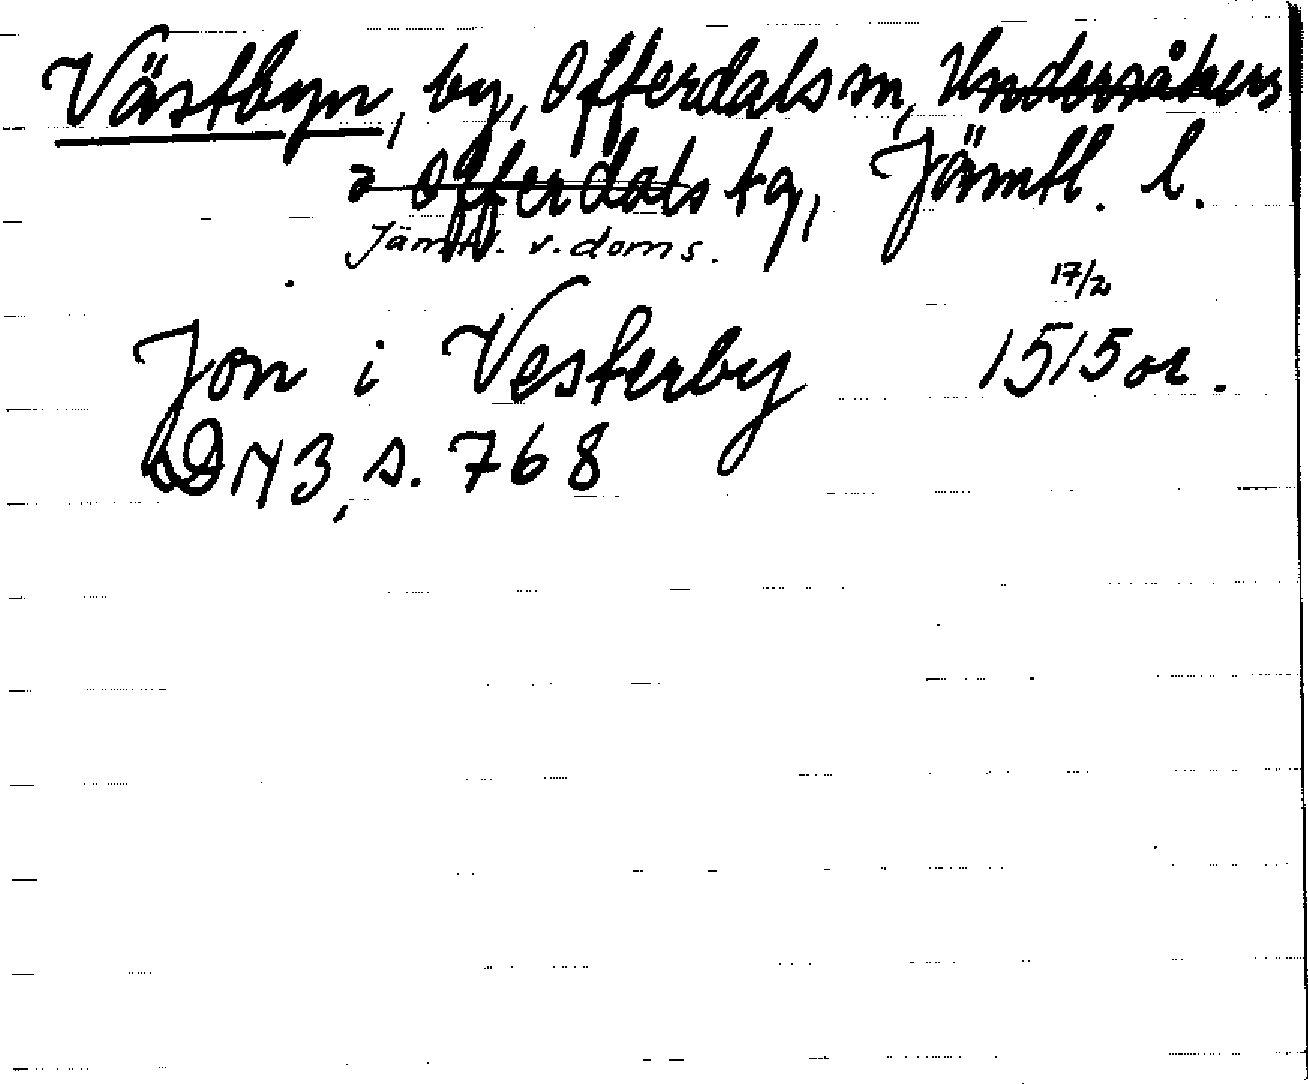 Västbyn, by, Offerdals sn, Undersåkers
o Offerdals tg, Jämtl. l.
Jämtl. v. doms.
17/2
Jon i Vesterby 1515 or.
DN 3, s. 768